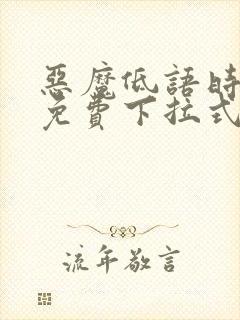 惡魔低語時
免費下拉式
流年敬言